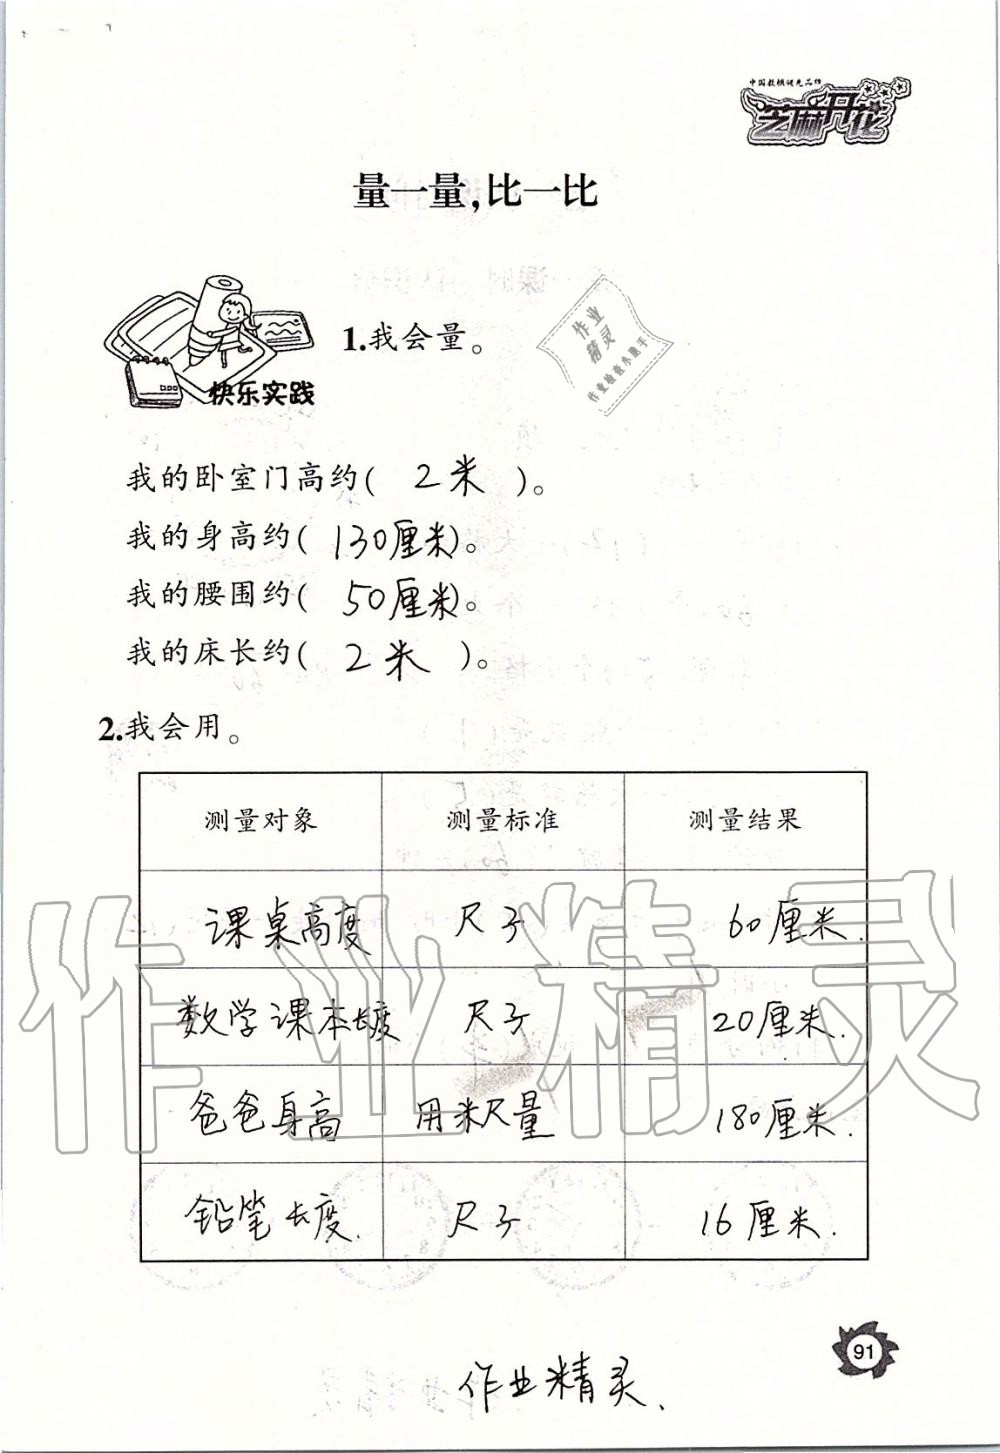 中国教辅领先品牌
芝麻开花
量一量,比一比
快乐实践
1.我会量。
作业
精灵
作业检查小助手
我的卧室门高约( 2米 )。
我的身高约( 130厘米)。
我的腰围约( 50厘米)。
我的床长约( 2米 )。
2.我会用。
测量对象 测量标准 测量结果
课桌高度 尺子 60厘米.
数学课本长度 尺子 20厘米.
爸爸身高 用米尺量 180厘米.
铅笔长度. 尺子 16厘米.
作业精灵
91
作业精灵.